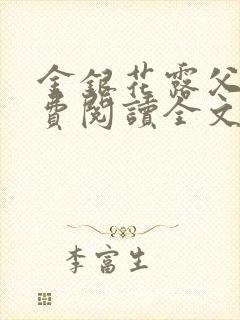 金銀花露父
費閱讀全文
李富生